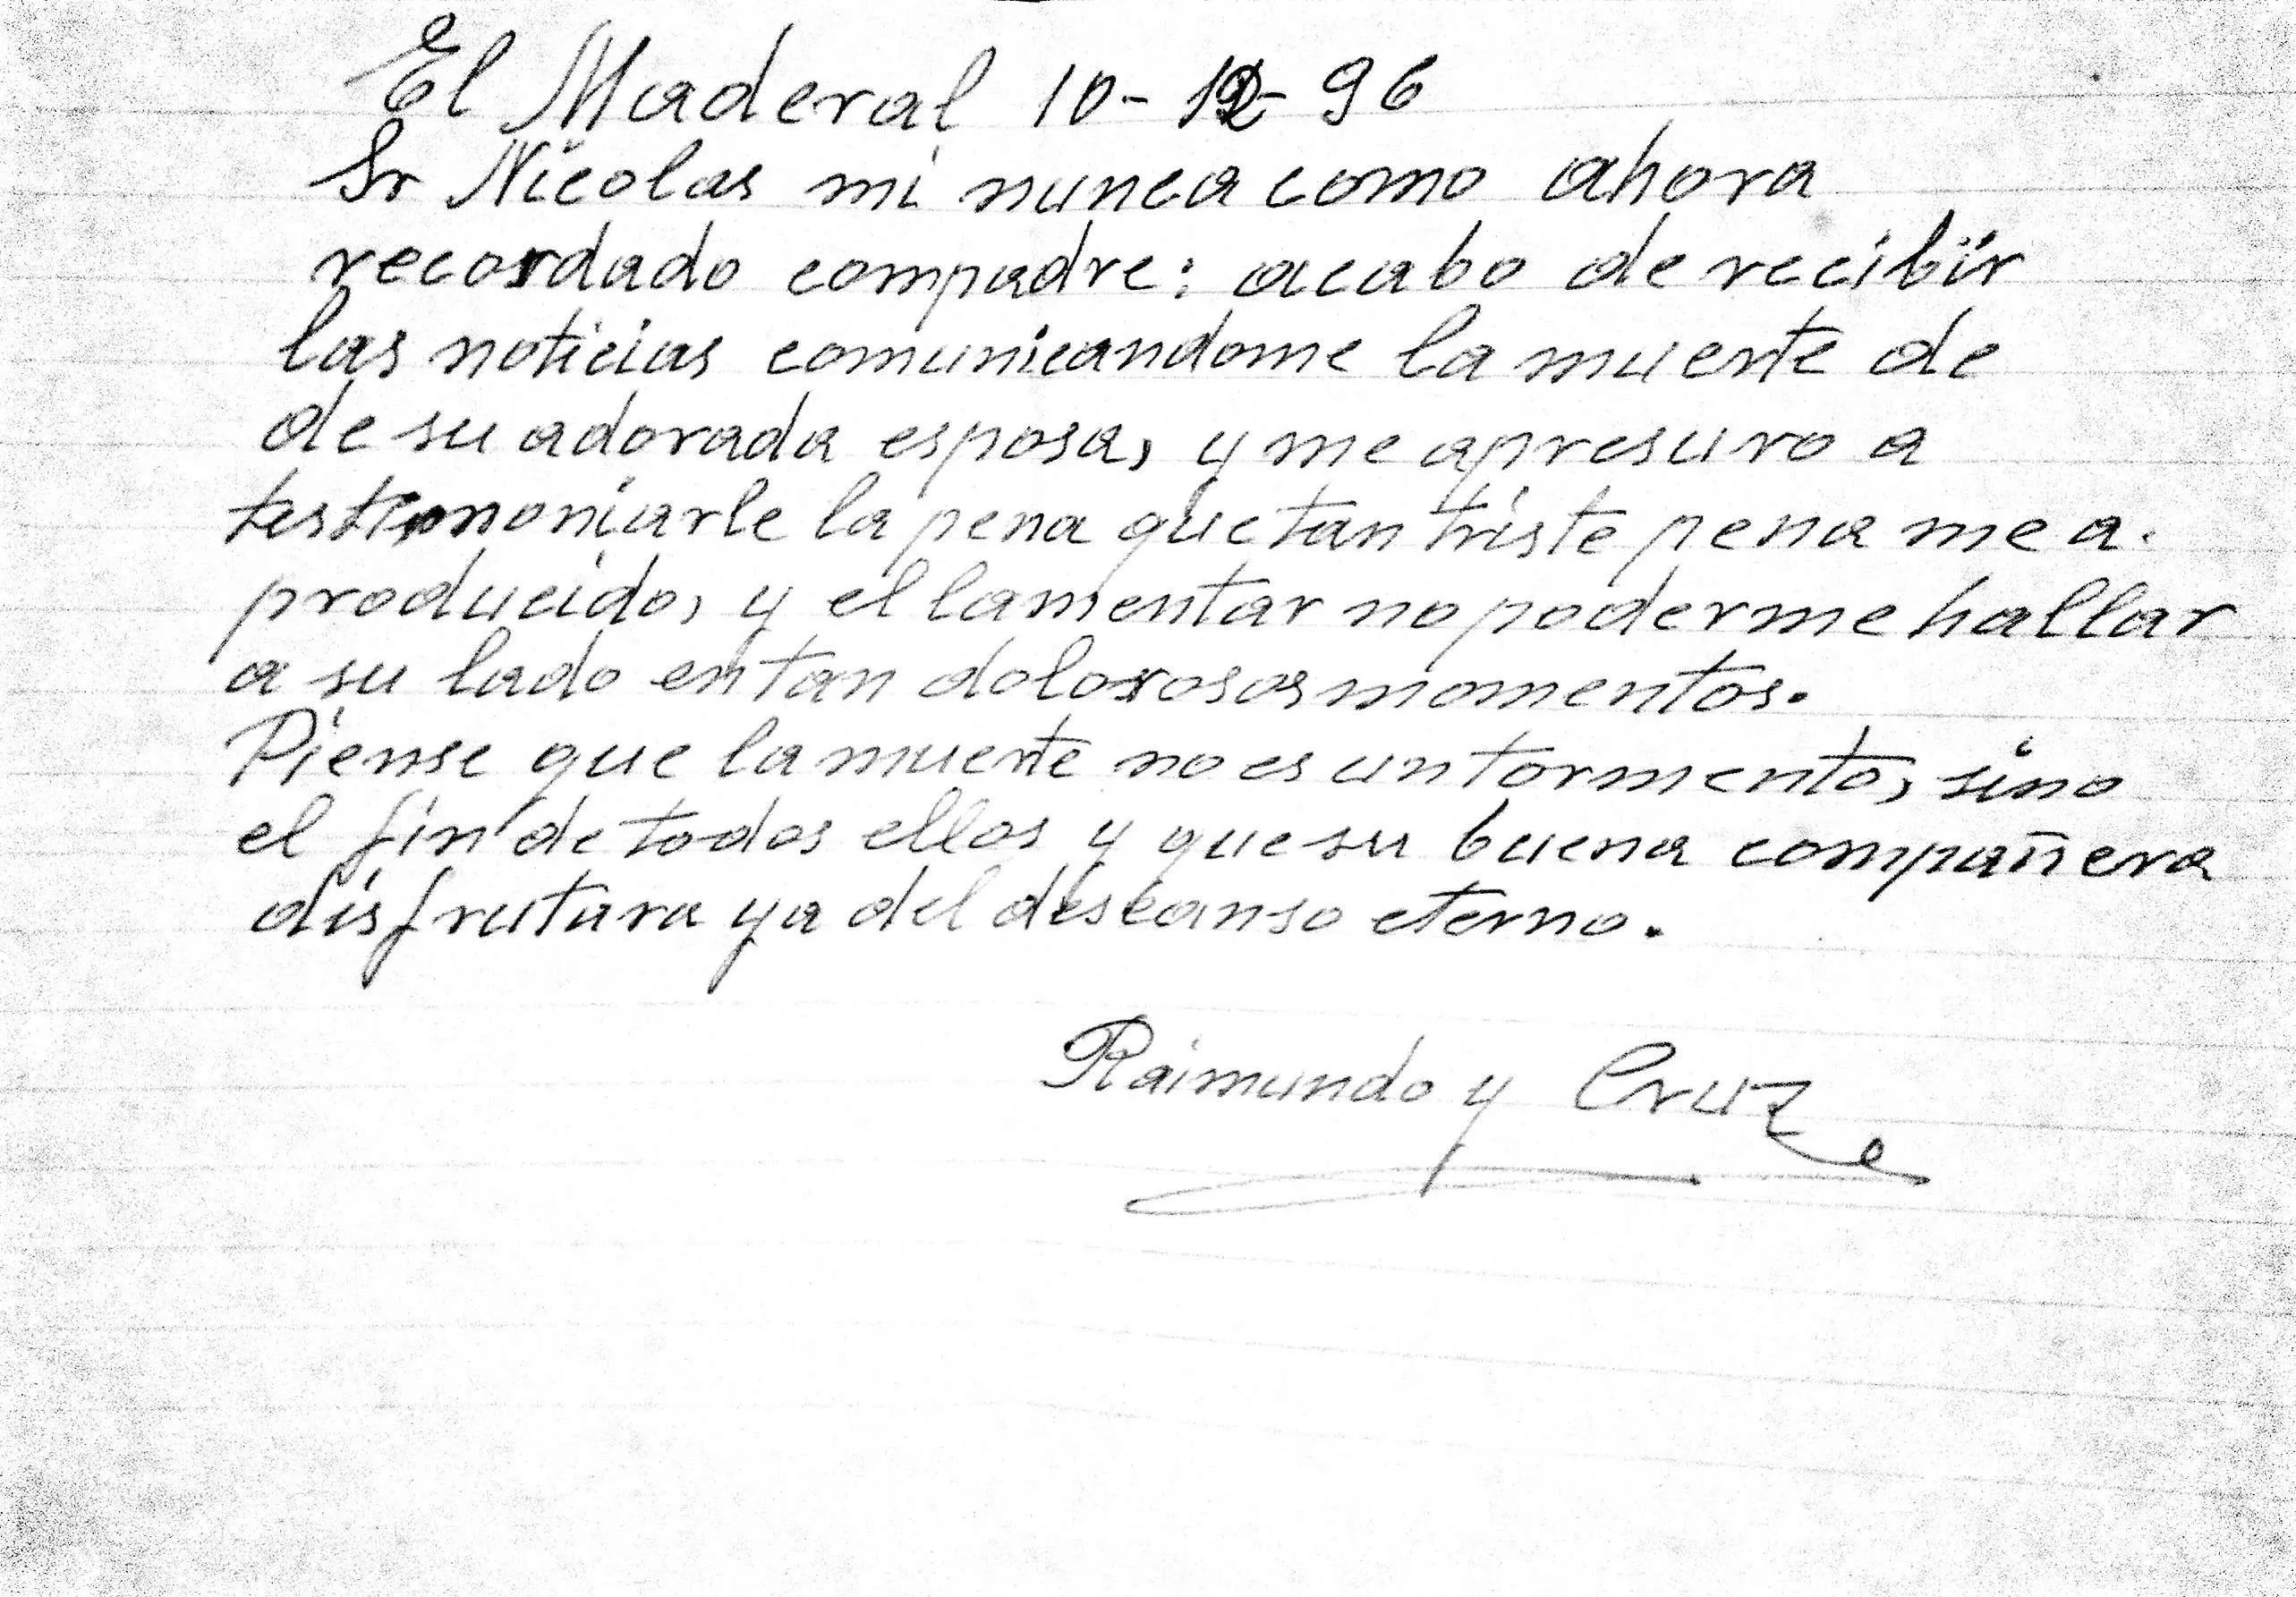 El Maderal 10-12-96
Sr Nicolas mi nunca como ahora
recordado compadre: acabo de recibir
las noticias comunicandome la muerte de
de su adorada esposa, y me apresuro a
testimoniarle la pena que tan triste pena me a.
producido, y el lamentar no poderme hallar
a su lado en tan dolorosos momentos.
Piense que la muerte no es un tormento, sino
el fin de todos ellos y que su buena compañera
disfrutara ya del descanso eterno.
Raimundo y Cruz